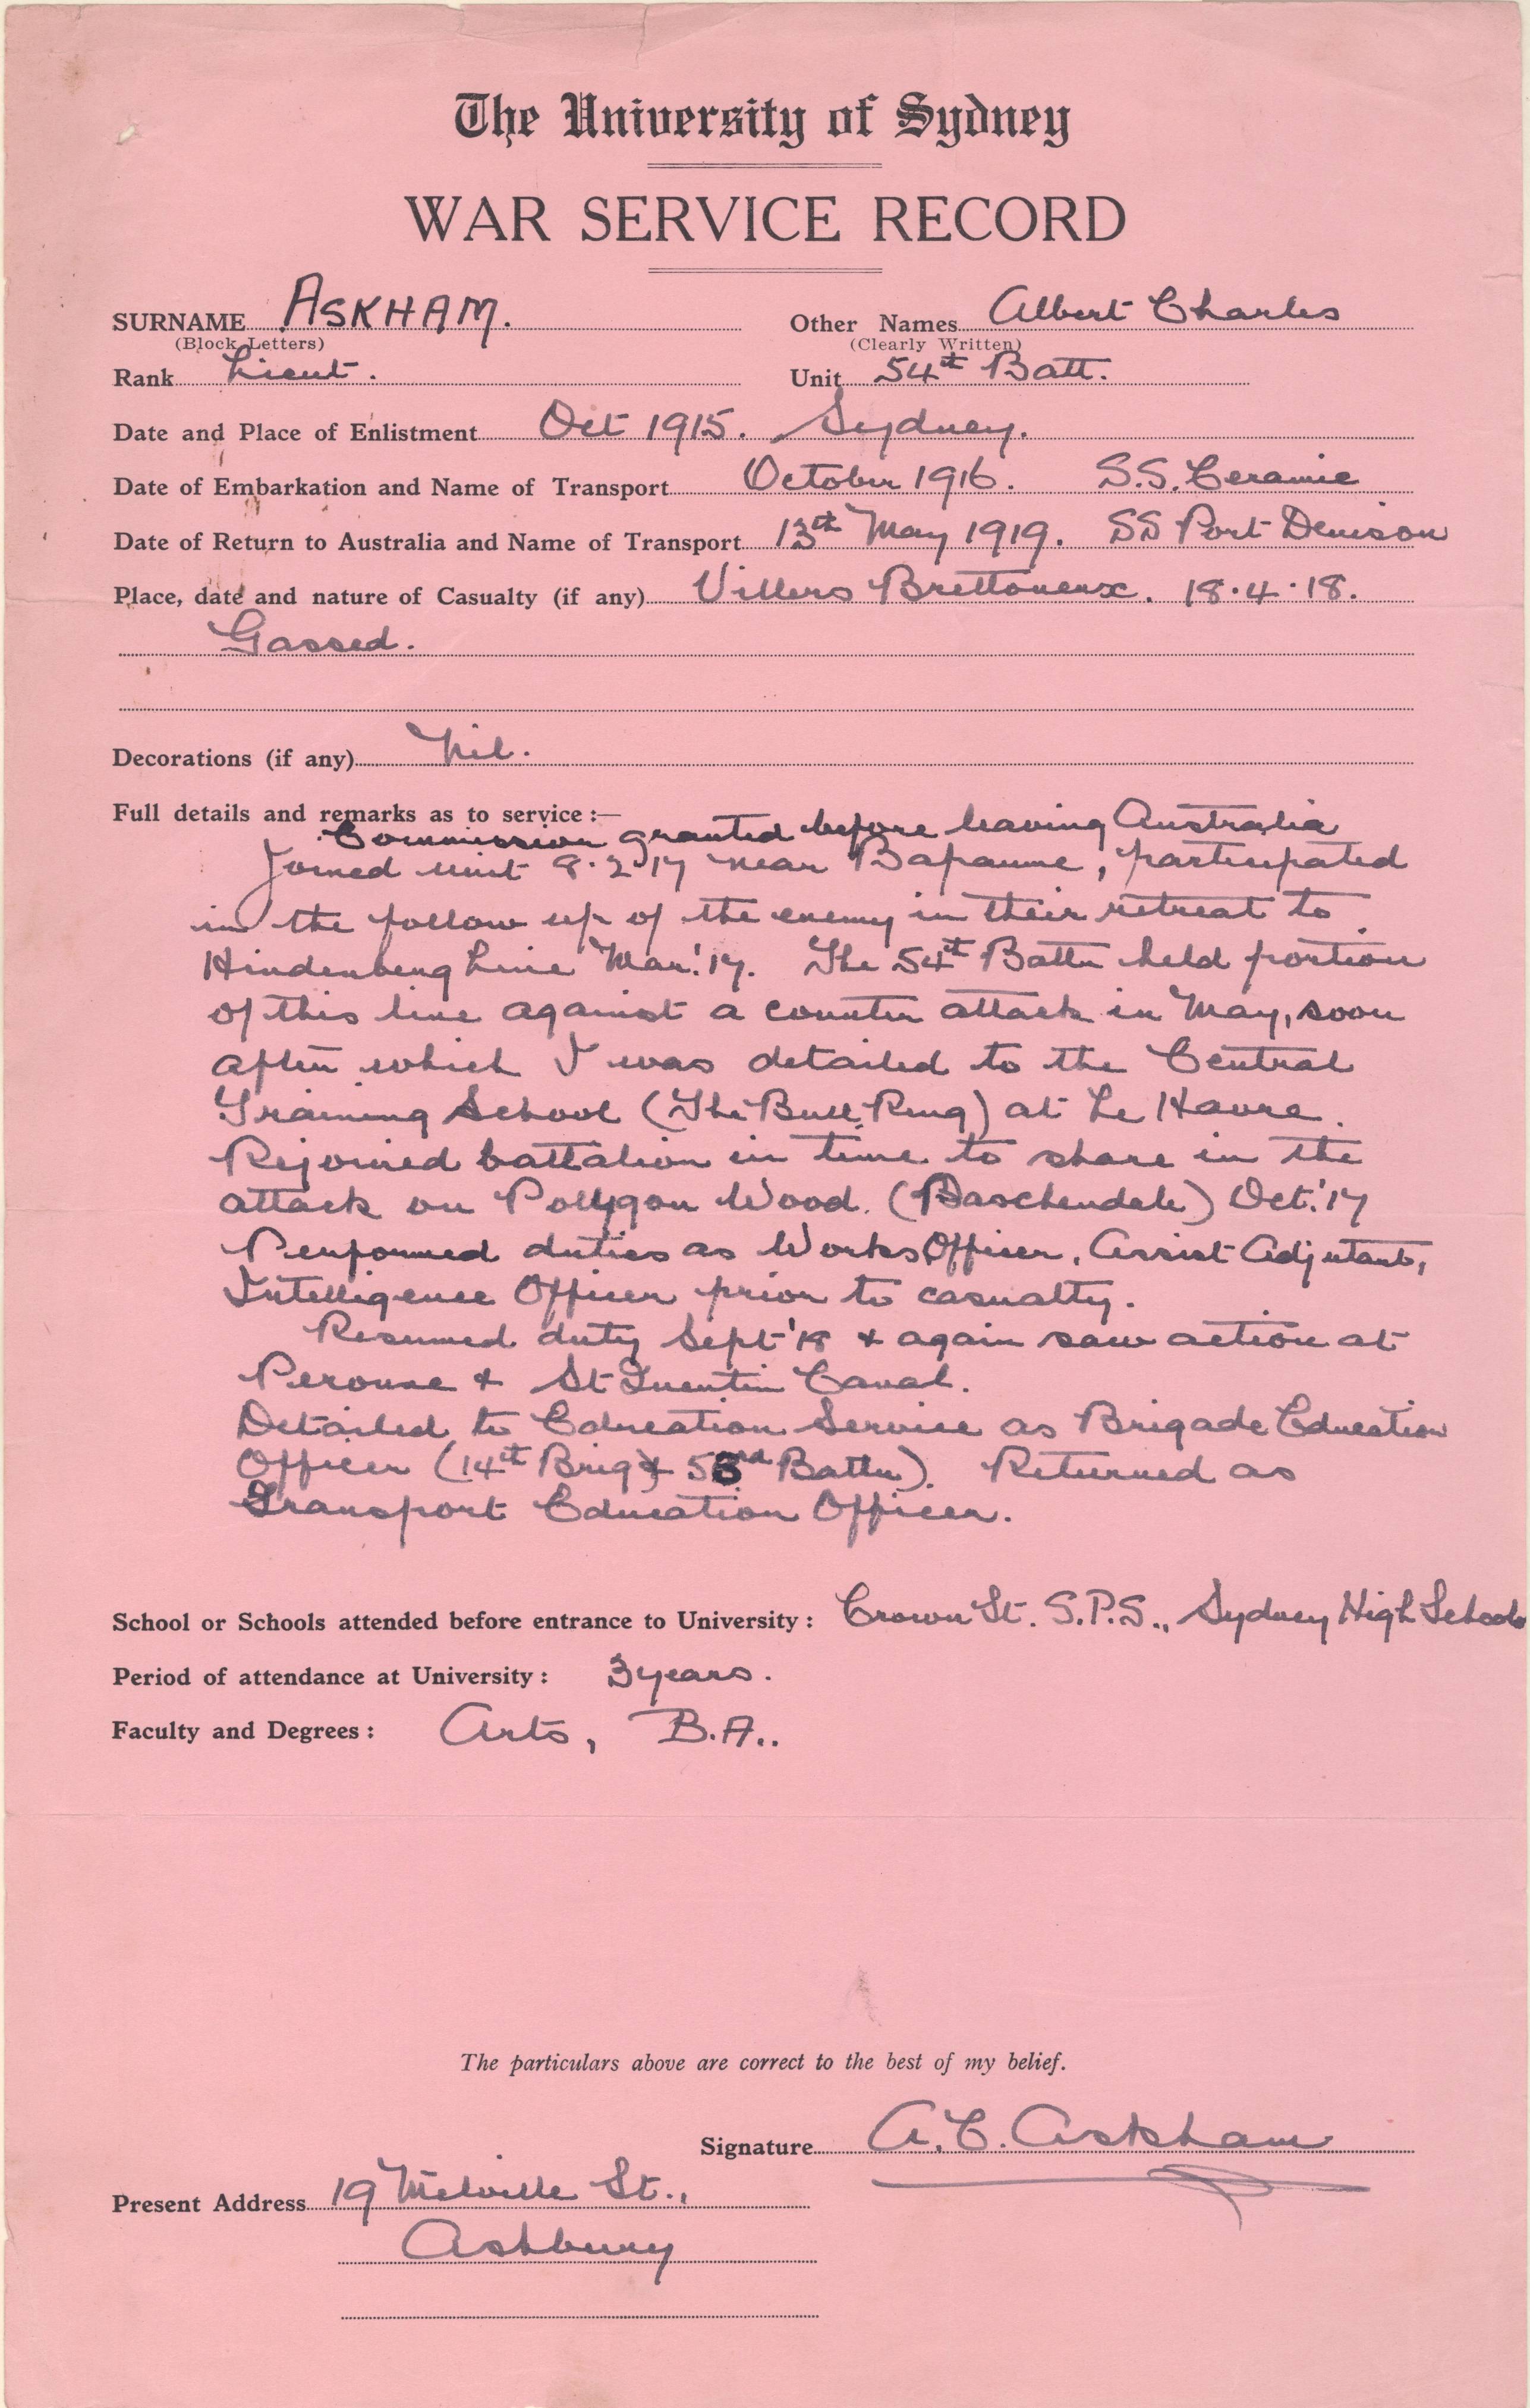 The University of Sydney
WAR SERVICE RECORD
SURNAME ASKHAM. Other Names Albert Charles
(Block Letters) (Clearly Written)
Rank Lieut. Unit 54th Batt.
Date and Place of Enlistment Oct 1915. Sydney.
Date of Embarkation and Name of Transport October 1916. S.S. Ceramic
Date of Return to Australia and Name of Transport 13th May 1919. SS Port Denison
Place, date and nature of Casualty (if any) Villers Brettoneux. 18.4.18.
Gassed.
Decorations (if any) Nil.
Full details and remarks as to service:—
Commission granted before leaving Australia
Joined unit 8.2.17 near Bapaume, participated
in the follow up of the enemy in their retreat to
Hindenberg Line Mar.'17. The 54th Battn held portion
of this line against a counter attack in May, soon
after which I was detailed to the Central
Training School (The Bull Ring) at Le Havre.
Rejoined battalion in time to share in the
attack on Polygon Wood. (Paschendale) Oct.'17
Performed duties as Works Officer, Assist Adjutant,
Intelligence Officer prior to casualty.
Resumed duty Sept '18 & again saw action at
Peronne & St Quentin Canal.
Detailed to Education Service as Brigade Education
Officer (14th Brig & 53rd Battn). Returned as
Transport Education Officer.
School or Schools attended before entrance to University: Crown St. S.P.S., Sydney High School
Period of attendance at University: 3 years.
Faculty and Degrees: Arts, B.A..
The particulars above are correct to the best of my belief.
Signature A. C. Askham
Present Address 19 Melville St.,
Ashbury